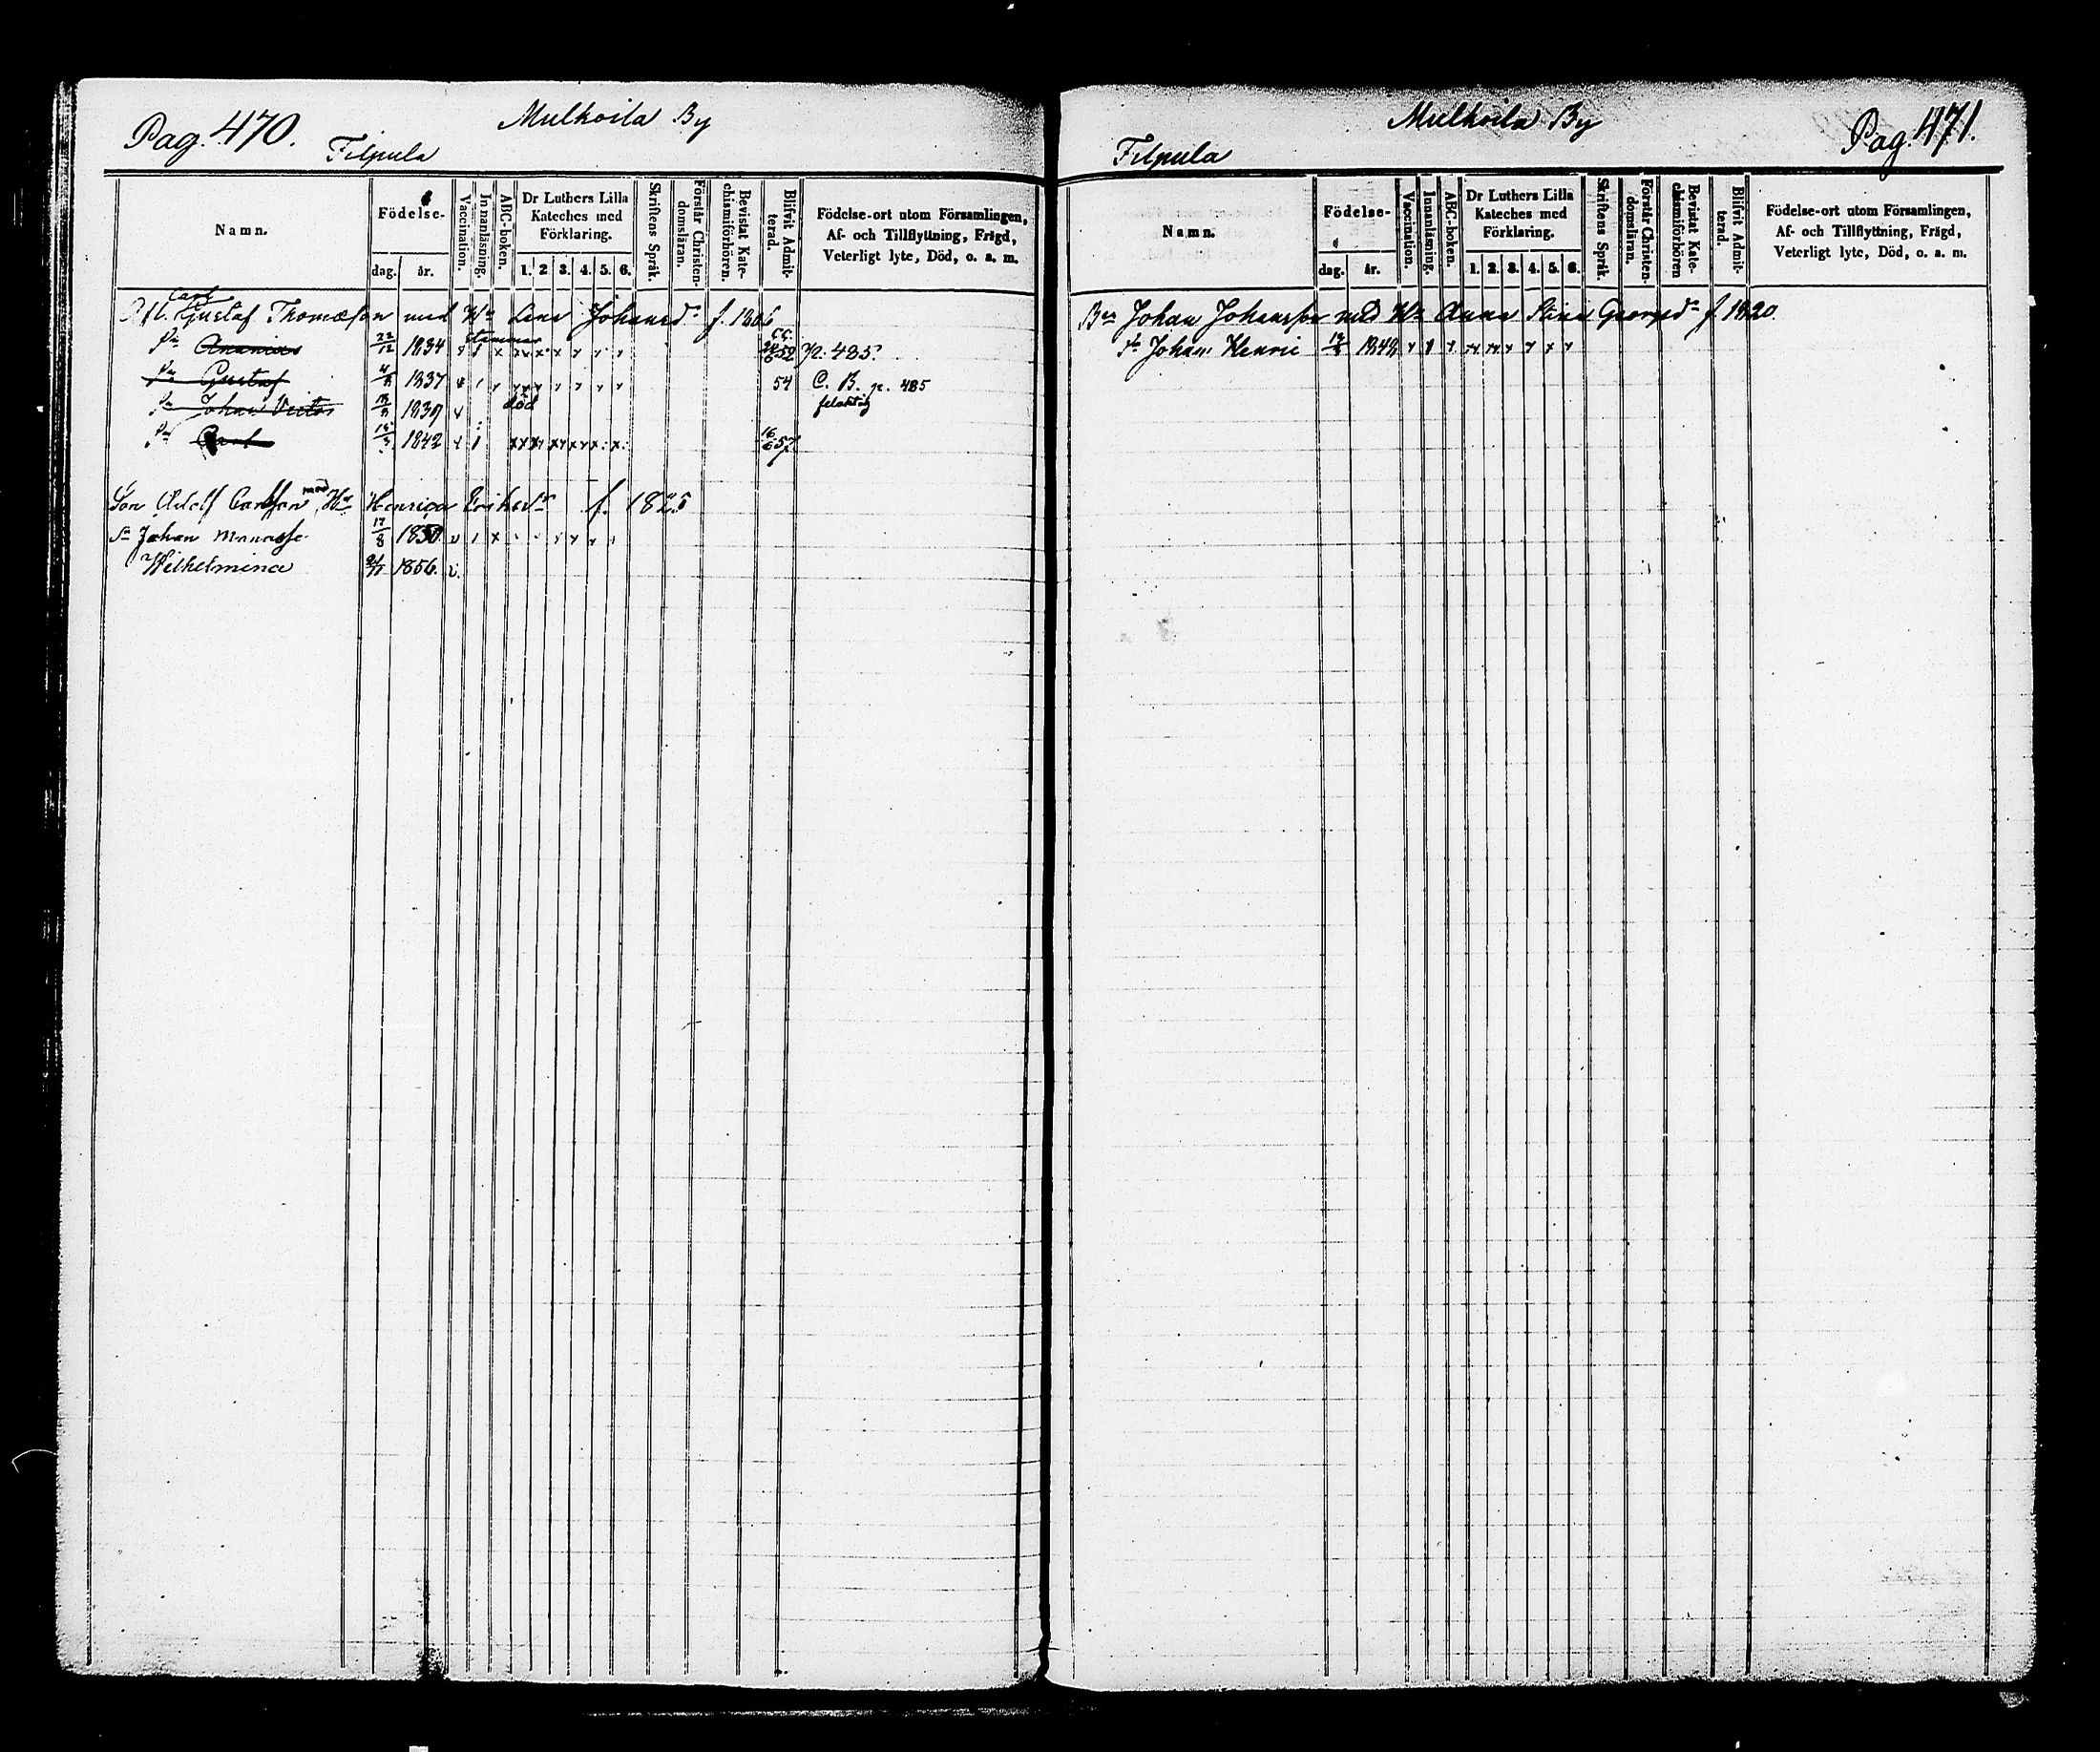 Pag. 470.
Mulkoila By
Filpula
Namn.
Födelse-
dag.
år.
Vaccination.
Innanläsning.
ABC-boken.
Dr Luthers Lilla
Kateches med
Förklaring.
1. 2 3. 4. 5. 6.
Skriftens Språk.
Förstår Christen-
domsläran.
Bevistat Kate-
chismiförhören.
Blifvit Admit-
terad.
Födelse-ort utom Församlingen,
Af- och Tillflyttning, Frägd,
Veterligt lyte, Död, o. a. m.
Carl
Gustaf Thomæson med Hu Lena Johansdr f. 1806
Stammar
Sn Ananias 22/12 1834 52 p. 485.
Sn Gustaf 1837 54 C. B. p. 485
felaktig
Sn Johan 1839 död
Sn Carl 1842 16/6 57.
Son Adolf Carlsson med Hu Henrica Eriksdr f. 1825
Sn Johan Manasse 17/8 1850
Wilhelmina 1856.
Mulkoila By
Pag. 471.
Filpula
Namn.
Födelse-
dag.
år.
Vaccination.
Innanläsning.
ABC-boken.
Dr Luthers Lilla
Kateches med
Förklaring.
1. 2. 3. 4. 5. 6.
Skriftens Språk.
Förstår Christen-
domsläran.
Bevistat Kate-
chismiförhören
Blifvit Admit-
terad.
Födelse-ort utom Församlingen,
Af- och Tillflyttning, Frägd,
Veterligt lyte, Död, o. a. m.
Johan Johansson med Hu Anna Stina Georgsdr f 1820.
Sn Johan Henric 1848